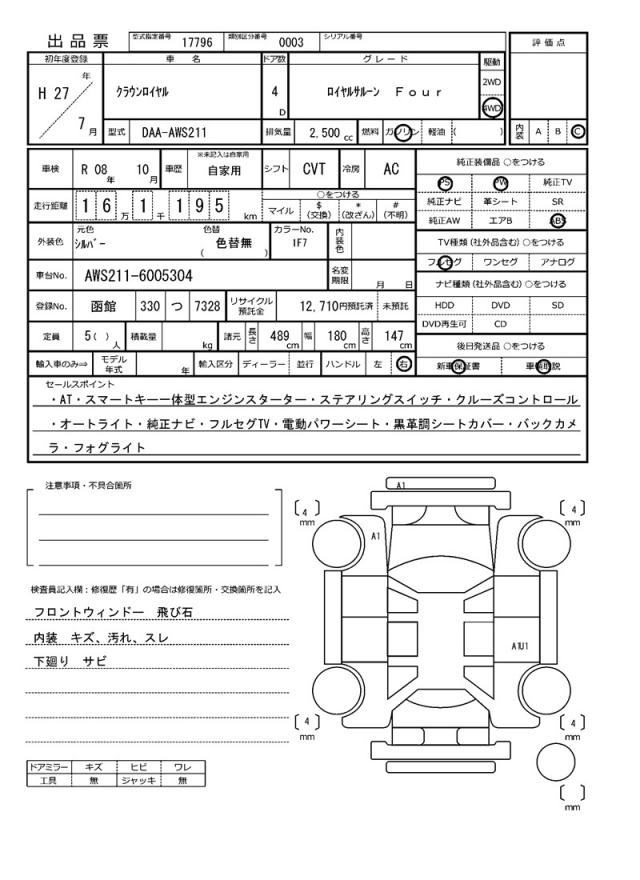 出品票 型式指定番号 17796 類別区分番号 0003 シリアル番号
評価点
初年度登録 車名 ドア数 グレード 駆動
H 27 年 7 月 クラウンロイヤル 4 D ロイヤルサルーン Four 2WD 4WD
型式 DAA-AWS211 排気量 2,500 cc 燃料 ガソリン 軽油 ( )
内装 A B C
車検 R 08 年 10 月 車歴 ※未記入は自家用 自家用 シフト CVT 冷房 AC
純正装備品 ○をつける
PS PW 純正TV
純正ナビ 革シート SR
純正AW エアB ABS
走行距離 1 6 万 1 千 1 9 5 km
○をつける
マイル $ (交換) * (改ざん) # (不明)
外装色 元色 シルバー 色替 ( 色替無 ) カラーNo. 1F7 内装色
TV種類 (社外品含む) ○をつける
フルセグ ワンセグ アナログ
車台No. AWS211-6005304 名変期限 月 日
ナビ種類 (社外品含む) ○をつける
HDD DVD SD
DVD再生可 CD
登録No. 函館 330 つ 7328 リサイクル預託金 12,710円預託済 未預託
定員 5( ) 人 積載量 kg 諸元 長さ 489 cm 幅 180 cm 高さ 147 cm
後日発送品 ○をつける
新車保証書 車輌取説
輸入車のみ⇒ モデル年式 年 輸入区分 ディーラー 並行 ハンドル 左 右
セールスポイント
・AT・スマートキー一体型エンジンスターター・ステアリングスイッチ・クルーズコントロール
・オートライト・純正ナビ・フルセグTV・電動パワーシート・黒革調シートカバー・バックカメ
ラ・フォグライト
注意事項・不具合箇所
検査員記入欄：修復歴「有」の場合は修復箇所・交換箇所を記入
フロントウィンドー 飛び石
内装 キズ、汚れ、スレ
下廻り サビ
ドアミラー キズ ヒビ ワレ
工具 無 ジャッキ 無
A1
4 mm
4 mm
A1
A1U1
4 mm
4 mm
mm